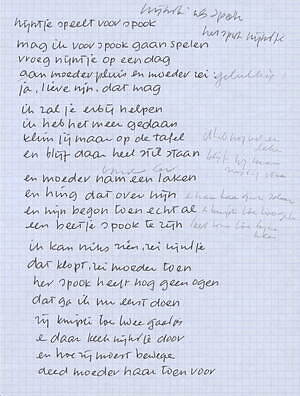 nijntje als spook
het spook nijntje
nijntje speelt voor spook
mag ik voor spook gaan spelen
vroeg nijntje op een dag
aan moeder pluis en moeder zei
ja, lieve nijn, dat mag
ik zal je erbij helpen
ik heb het meer gedaan
klim jij maar op de tafel
en blijf daar heel stil staan
en moeder nam een laken
en hing dat over nijn
en nijn begon toen echt al
een beetje spook te zijn
ik kan niks zien, zei nijntje
dat klopt, zei moeder toen
het spook heeft nog geen ogen
dat ga ik nu eerst doen
zij knipte toe twee gaatjes
e daar keek nijntje door
en hoe zij moest bewege
deed moeder haar toen voor